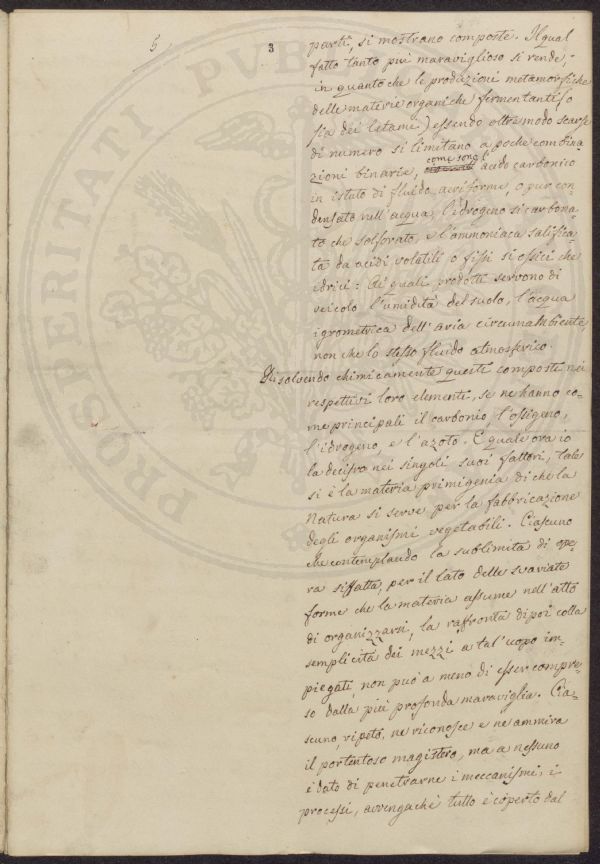 5
3
parti, si mostrano composte. Il qual
fatto tanto più maraviglioso si rende,
in quanto che le produzioni metamorfiche
delle materie organiche fermentanti (o
sia dei letami) essendo oltre modo scarse
di numero si limitano a poche combina
zioni binarie, come sono l'acido carbonico
in istato di fluido aeriforme, o pur con
densato nell'acqua, l'idrogeno sì carbona-
to che solforato, e l'ammoniaca salifica-
ta da acidi volatili o fissi sì ossici che
idrici: Ai quali prodotti servono di
veicolo l'umidità del suolo, l'acqua
igrometrica dell'aria circumambiente,
non che lo stesso fluido atmosferico.
Risolvendo chimicamente questi composti nei
respettivi loro elementi, se ne hanno co-
me principali il carbonio, l'ossigeno,
l'idrogeno, e l'azoto. E quale ora io
la decifro nei singoli suoi fattori, tale
si è la materia primigenia di che la
Natura si serve per la fabbricazione
degli organismi vegetabili. Ciascuno
che contemplando la sublimità di ope-
ra siffatta, per il lato delle svariate
forme che la materia assume nell'atto
di organizzarsi, la raffronta dipoi colla
semplicità dei mezzi a tal'uopo im-
piegati, non può a meno di esser compre-
so dalla più profonda maraviglia. Cia-
scuno, ripeto, ne riconosce e ne ammira
il portentoso magistero, ma a nessuno
è dato di penetrarne i meccanismi, i
processi, avvengachè tutto è coperto dal
PROSPERITATI PVBLICAE